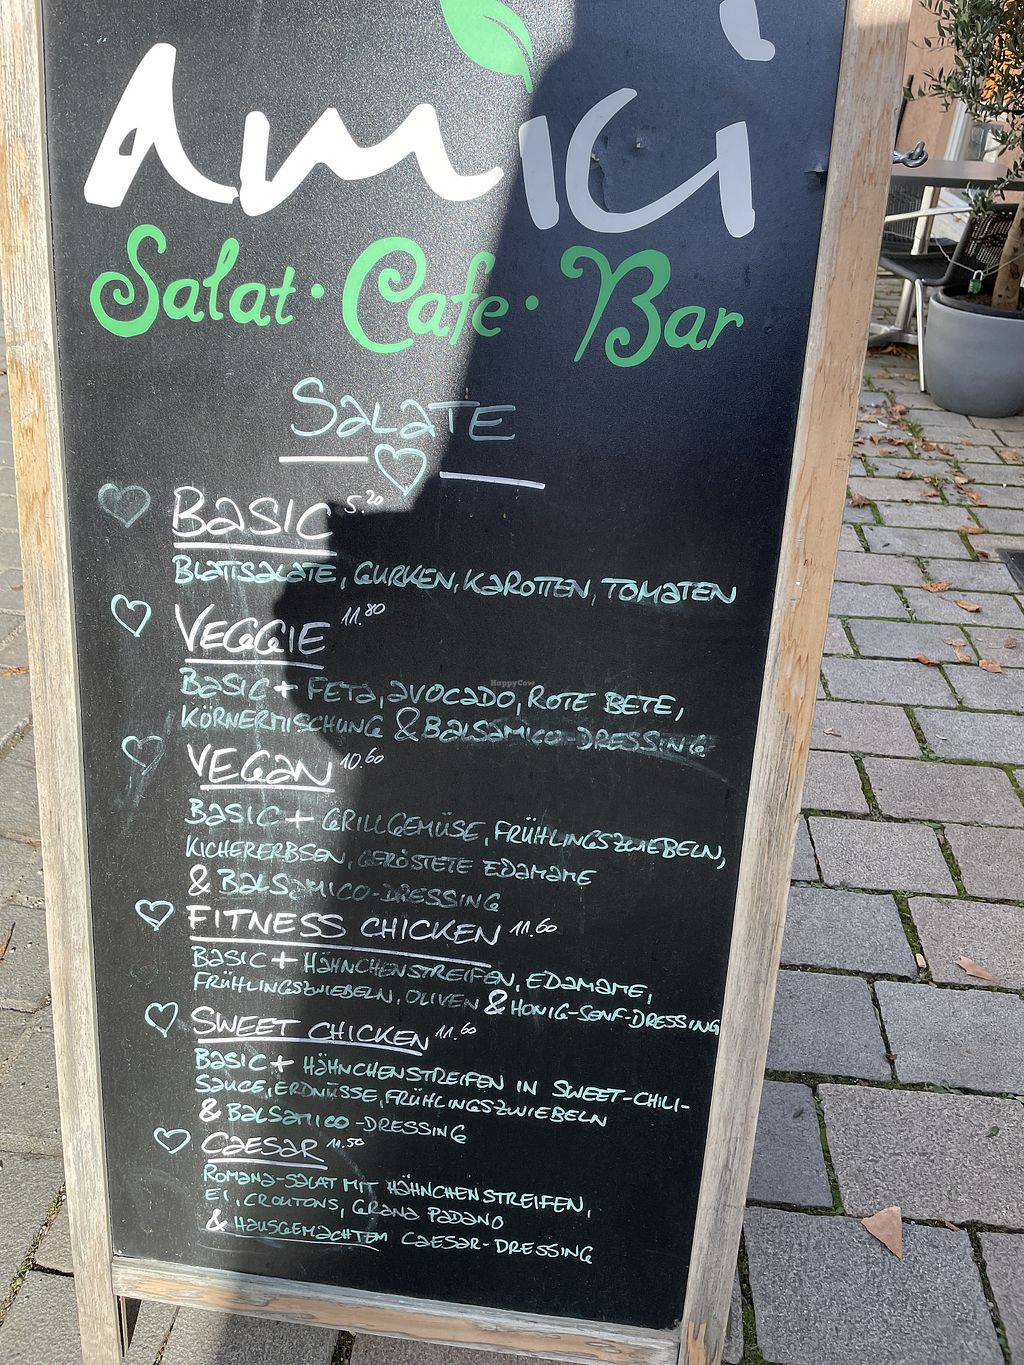 Amici
Salat · Cafe · Bar
SALATE
BASIC 5.20
BLATTSALATE, GURKEN, KAROTTEN, TOMATEN
VEGGIE 11.80
BASIC + FETA, AVOCADO, ROTE BETE,
KÖRNERMISCHUNG & BALSAMICO-DRESSING
VEGAN 10.60
BASIC + GRILLGEMÜSE, FRÜHLINGSZWIEBELN,
KICHERERBSEN, GERÖSTETE EDAMAME
& BALSAMICO-DRESSING
FITNESS CHICKEN 11.60
BASIC + HÄHNCHENSTREIFEN, EDAMAME,
FRÜHLINGSZWIEBELN, OLIVEN & HONIG-SENF-DRESSING
SWEET CHICKEN 11.60
BASIC + HÄHNCHENSTREIFEN IN SWEET-CHILI-
SAUCE, ERDNÜSSE, FRÜHLINGSZWIEBELN
& BALSAMICO-DRESSING
CAESAR 11.50
ROMANA-SALAT MIT HÄHNCHENSTREIFEN,
EI, CROUTONS, GRANA PADANO
& HAUSGEMACHTEM CAESAR-DRESSING
HappyCow